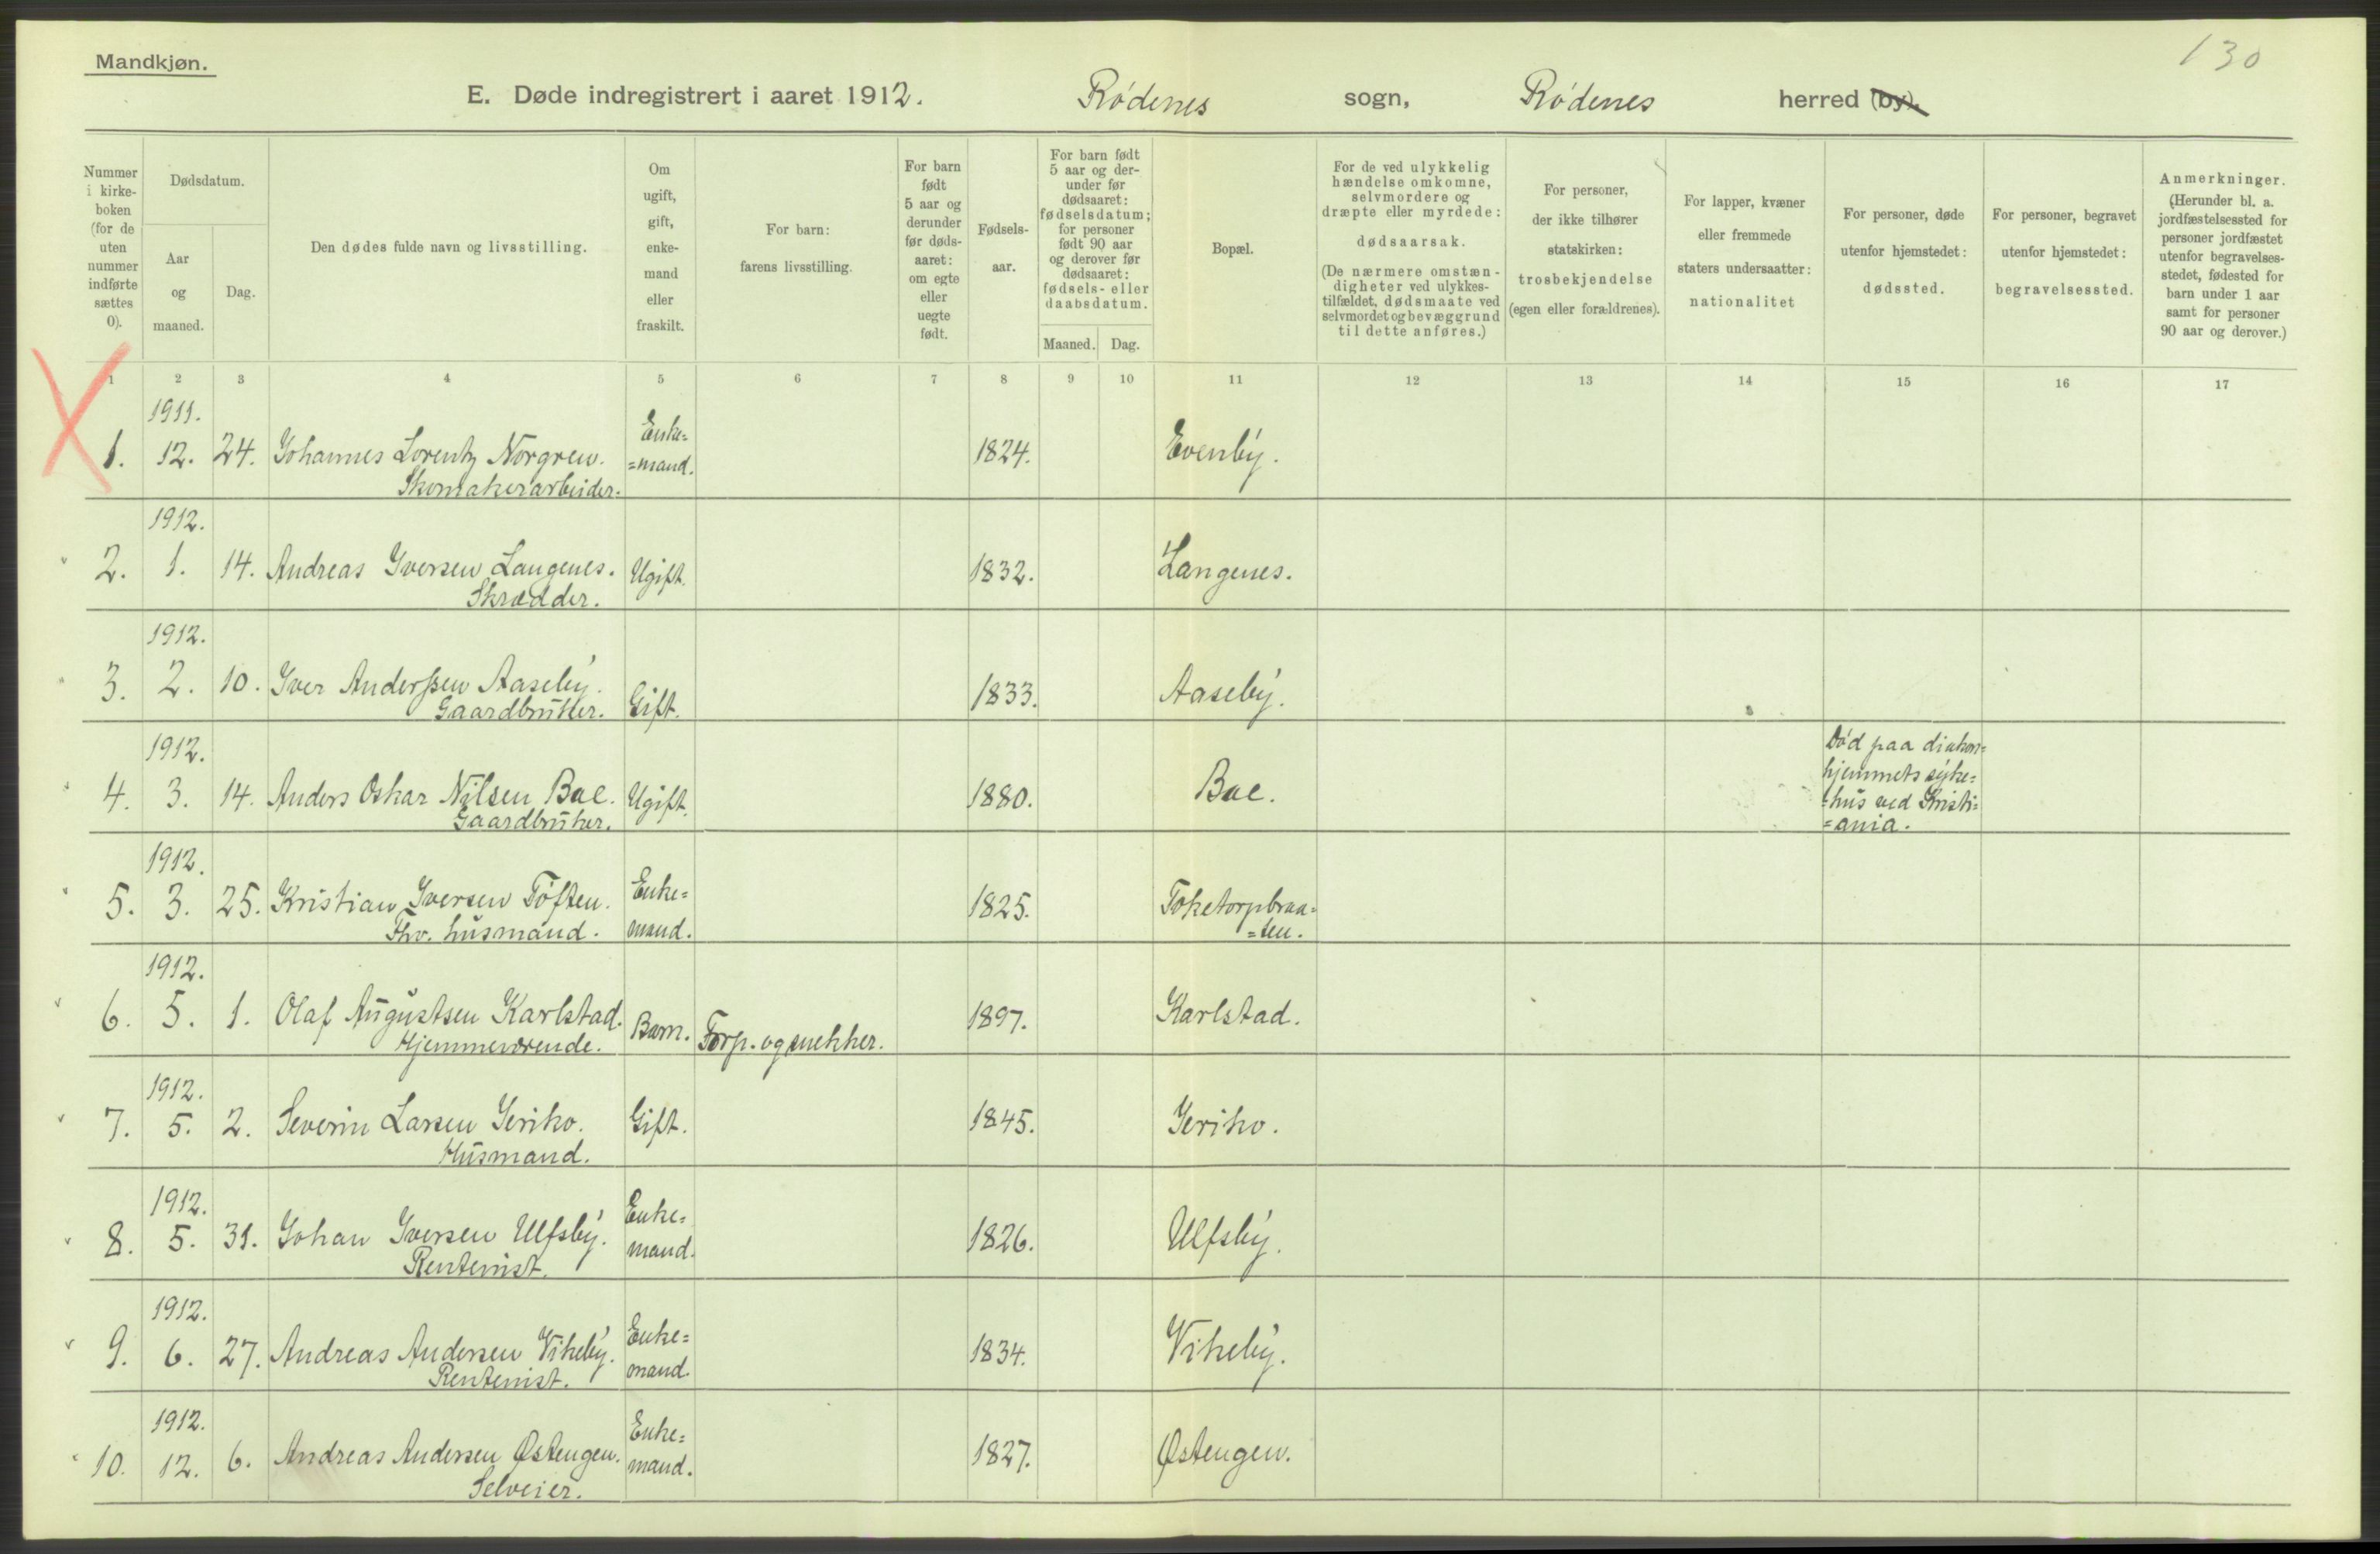 Mandkjøn.
130
E. Døde indregistrert i aaret 1912. Rødenes sogn, Rødenes herred (by).
Nummer i kirke-boken (for de uten nummer indførte sættes 0).
Dødsdatum.
Aar og maaned.
Dag.
Den dødes fulde navn og livsstilling.
Om ugift, gift, enke-mand eller fraskilt.
For barn: farens livsstilling.
For barn født 5 aar og derunder før døds-aaret: om egte eller uegte født.
Fødsels-aar.
For barn født 5 aar og der-under før dødsaaret: fødselsdatum; for personer født 90 aar og derover før dødsaaret: fødsels- eller daabsdatum.
Maaned. Dag.
Bopæl.
For de ved ulykkelig hændelse omkomne, selvmordere og dræpte eller myrdede: dødsaarsak. (De nærmere omstæn-digheter ved ulykkes-tilfældet, dødsmaate ved selvmordet og bevæggrund til dette anføres.)
For personer, der ikke tilhører statskirken: trosbekjendelse (egen eller forældrenes).
For lapper, kvæner eller fremmede staters undersaatter: nationalitet
For personer, døde utenfor hjemstedet: dødssted.
For personer, begravet utenfor hjemstedet: begravelsessted.
Anmerkninger. (Herunder bl. a. jordfæstelsessted for personer jordfæstet utenfor begravelses-stedet, fødested for barn under 1 aar samt for personer 90 aar og derover.)
1 2 3 4 5 6 7 8 9 10 11 12 13 14 15 16 17
1911.
1. 12. 24. Johannes Lorentz Norgren. Enke= =mand. 1824. Evenby.
Skomakerarbeider.
1912.
2. 1. 14. Andreas Iversen Langenes. Ugift. 1832. Langenes.
Skrædder.
1912.
3. 2. 10. Iver Anderssen Aaseby. Gift. 1833. Aaseby.
Gaardbruker.
1912.
4. 3. 14. Anders Oskar Nilsen Boe. Ugift. 1880. Boe. Død paa diakon= hjemmets syke= =hus ved Kristi= =ania.
Gaardbruker.
1912.
5. 3. 25. Kristian Iversen Toften. Enke= mand. 1825. Toketorpbraa= =ten.
Fhv. husmand.
1912.
6. 5. 1. Olaf Augustsen Karlstad. Barn. Torp. og snekker. 1897. Karlstad.
Hjemmeværende.
1912.
7. 5. 2. Severin Larsen Jeriko. Gift. 1845. Jeriko.
Husmand.
1912.
8. 5. 31. Johan Iversen Ulfsby. Enke= mand. 1826. Ulfsby.
Rentenist.
1912.
9. 6. 27. Andreas Andersen Vikeby. Enke= mand. 1834. Vikeby.
Rentenist.
1912.
10. 12. 6. Andreas Andersen Østengen. Enke= mand. 1827. Østengen.
Selveier.